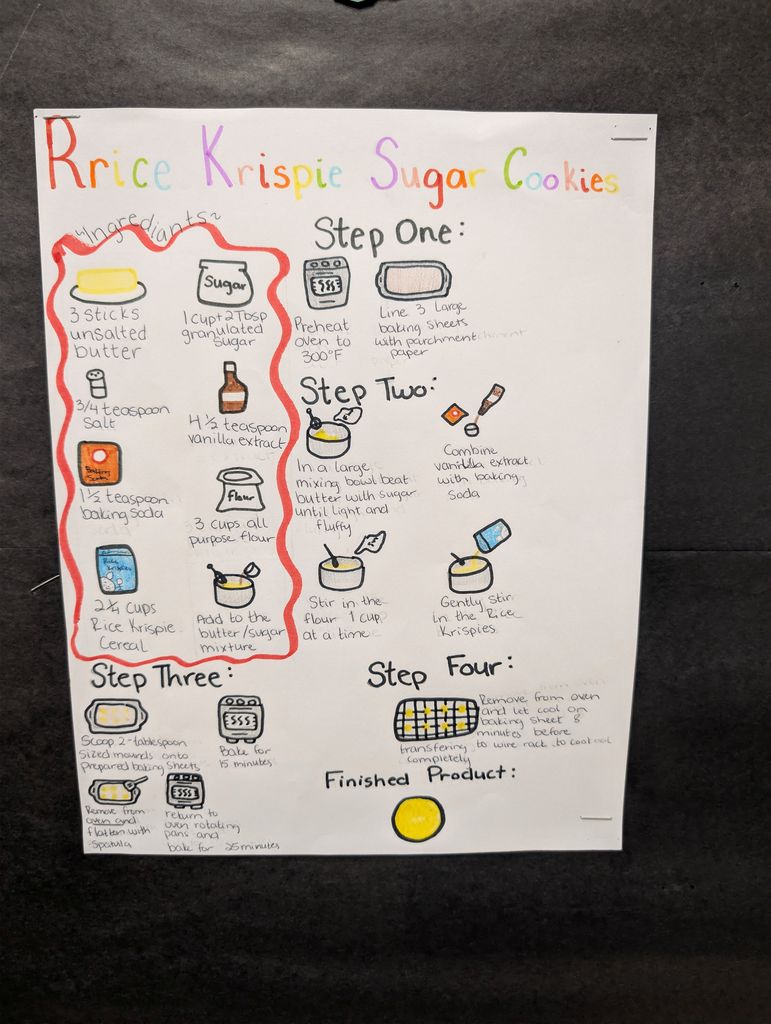 Rrice Krispie Sugar Cookies
~Ingrediants~
3 sticks
unsalted
butter
Sugar
1 cup + 2 Tbsp
granulated
sugar
3/4 teaspoon
Salt
4 1/2 teaspoon
vanilla extract
Baking
Soda
1 1/2 teaspoon
baking soda
flour
3 cups all
purpose flour
Rice
Krispies
2 1/4 cups
Rice Krispie
Cereal
Add to the
butter/sugar
mixture
Step One:
Preheat
oven to
300°F
Line 3 Large
baking sheets
with parchment
paper
Step Two:
In a large
mixing bowl beat
butter with sugar
until light and
fluffy
Combine
vanilla extract
with baking
soda
Stir in the
flour 1 cup
at a time
Gently stir
in the Rice
Krispies
Step Three:
Scoop 2-tablespoon
sized mounds onto
prepared baking sheets
Bake for
15 minutes
Remove from
oven and
flatten with
spatula
return to
oven rotating
pans and
bake for 25 minutes
Step Four:
Remove from oven
and let cool on
baking sheet 8
minutes before
transfering to wire rack to cool
completely
Finished Product: